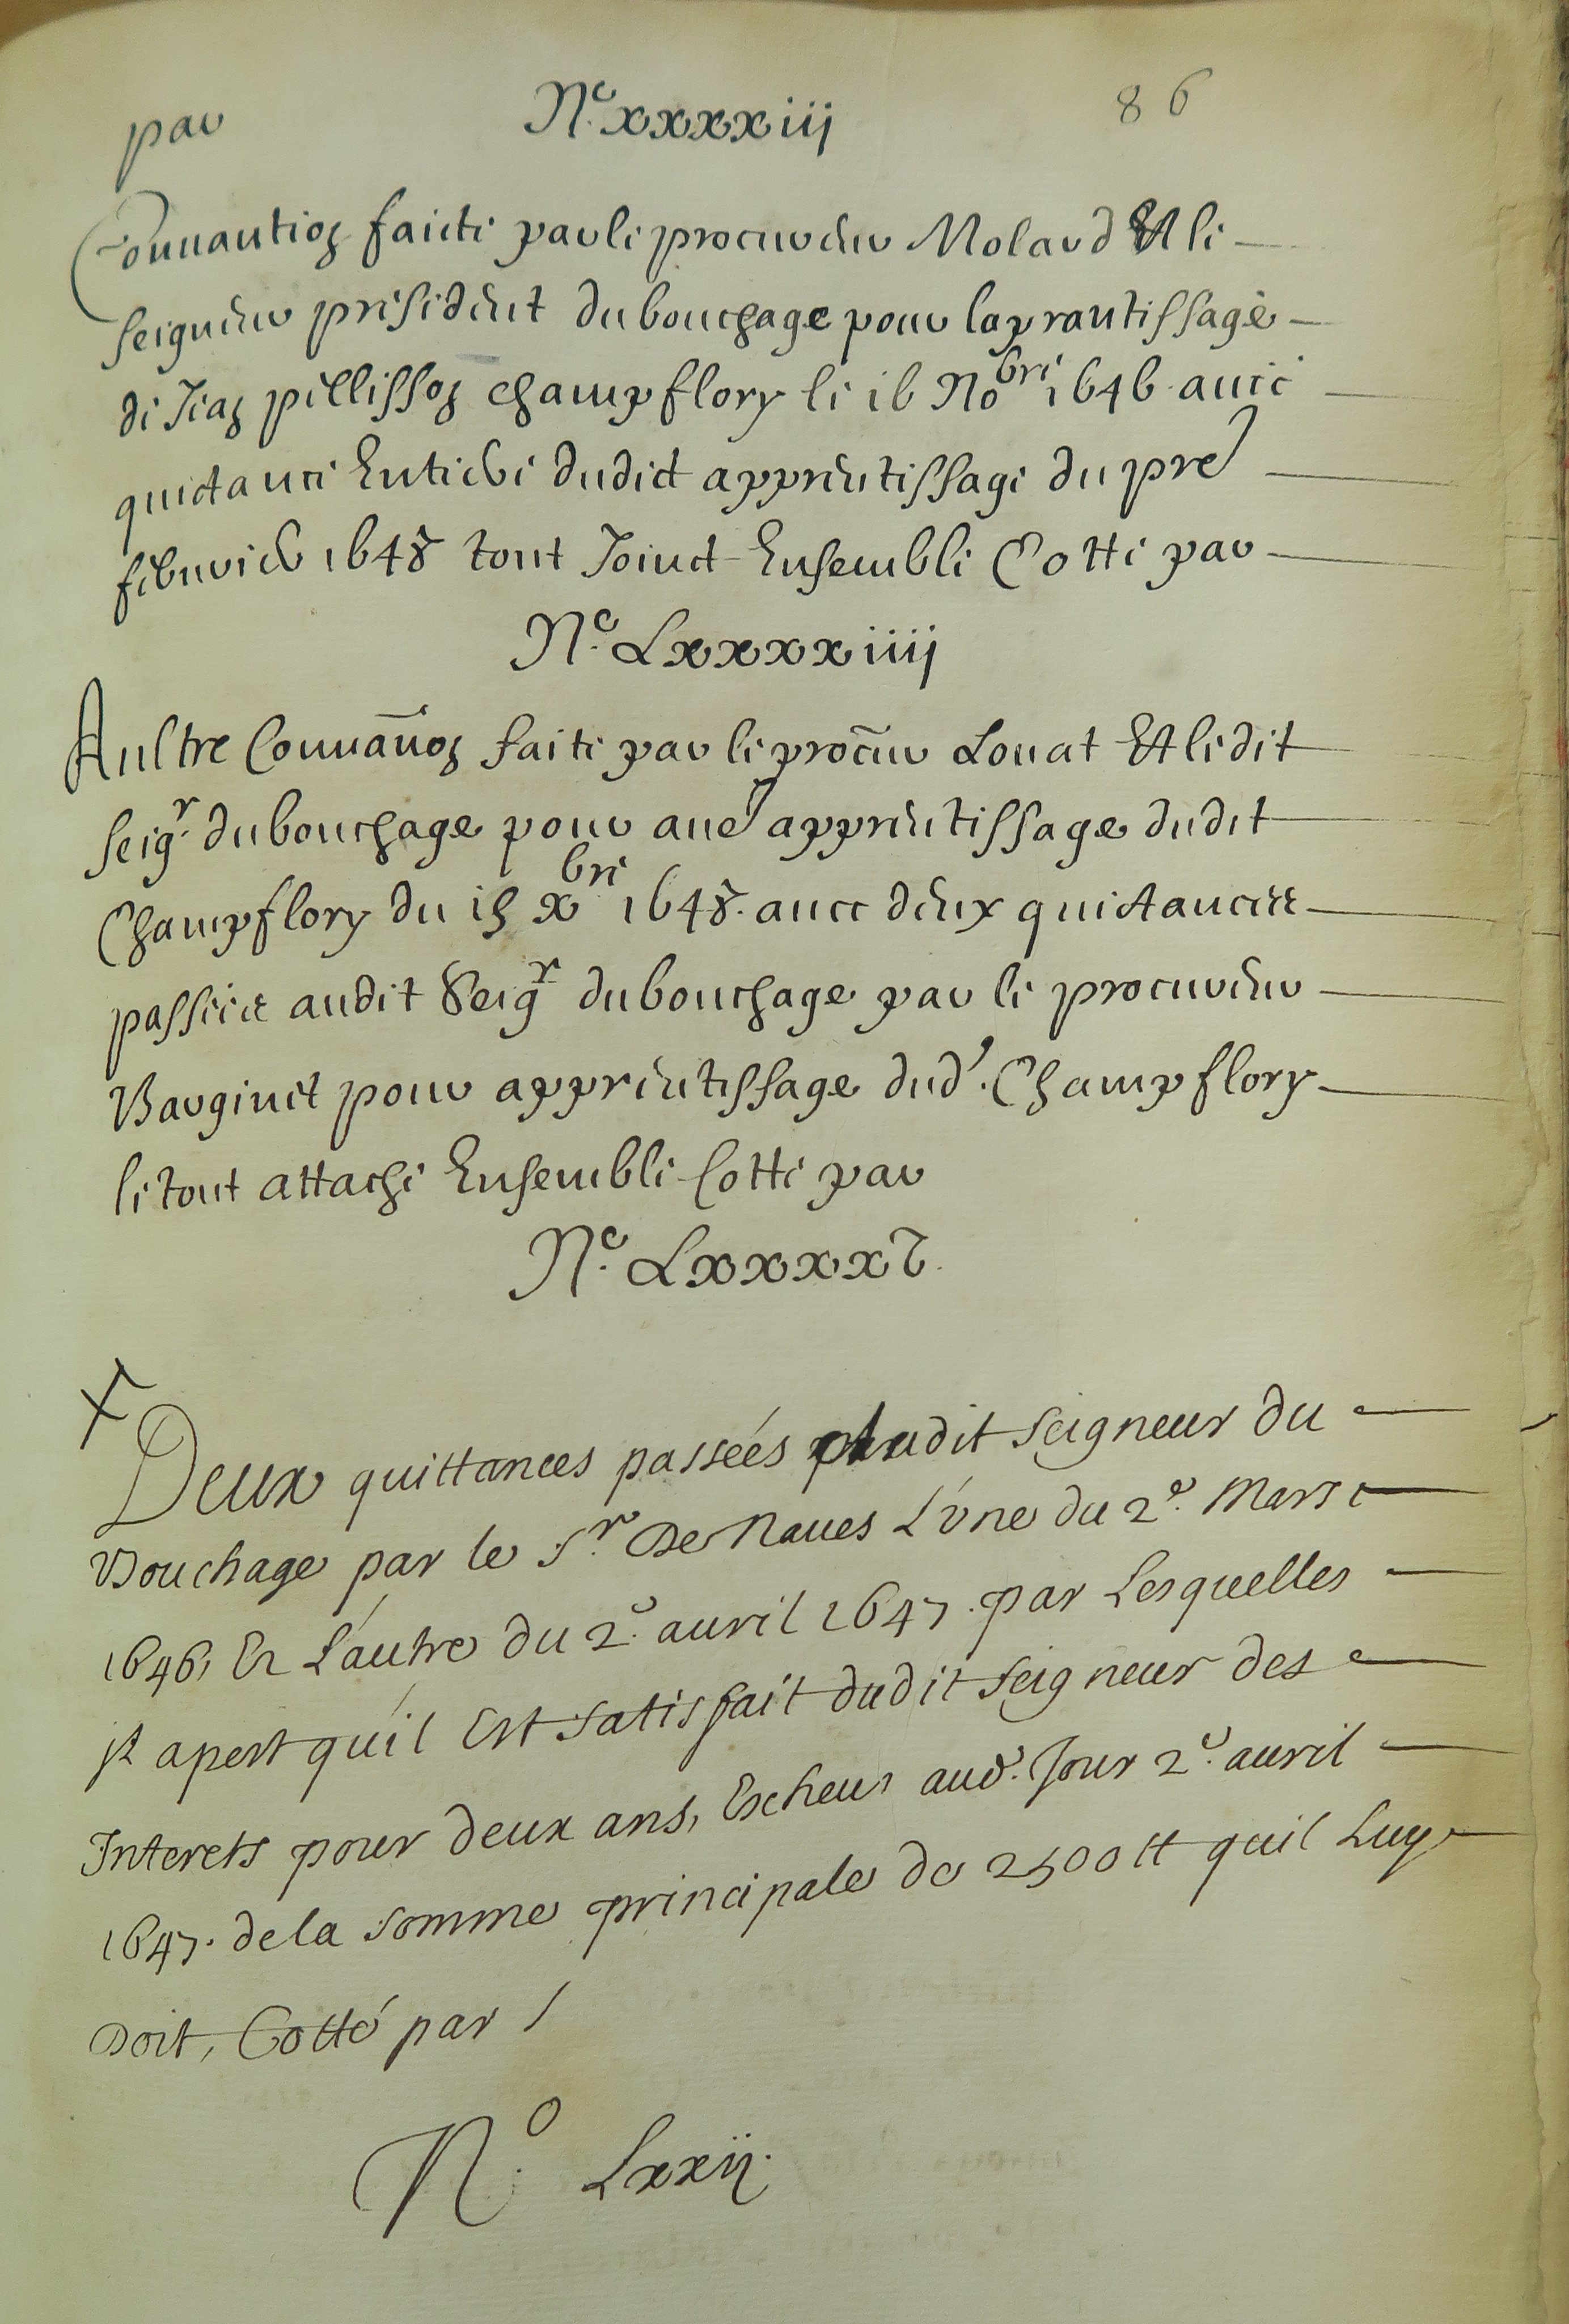 par N.º xxxxiij 86
Conuantion faicte par le procureur Molard Et le
seigneur president du bouchage pour laprantissage
de Jean pellisson champflory le 16 No^bre 1646 auec
quictance Entiere dudict apprentissage du pre^r
feburier 1648 tout Joinct Ensemble Cotte par
N.º Lxxxxiiij
Aultre Conuãnon faite par le procũr Louat Et ledit
seig^r. du bouchage pour aue^r apprentissage dudit
Champflory du 15 x^bre 1648. auec deux quictances
passees audit Seig^r du bouchage par le procureur
Bauginet pour apprentissage dud^t. Champflory
le tout attache Ensemble Cotte par
N.º Lxxxxv.
Deux quittances passées audit seigneur du
Bouchage par le s^r. De Naues L'vne du 2.^e Mars
1646, Et L'autre du 2.^e auril 1647. par Lesquelles
Jl apert qu'il Est satisfait dudit seigneur des
Interets pour deux ans, Escheus aud^t. Jour 2.^e auril
1647. de la somme principale de 2500 tt quil Luy
Doit, Cotté par /
N.º Lxxij.